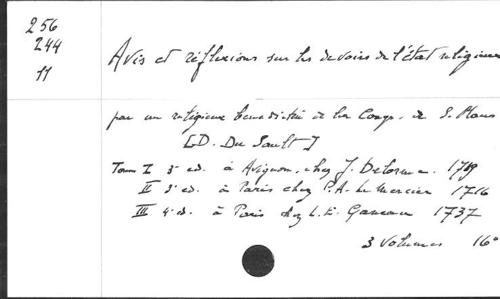 256
244
11
Avis et réflexions sur les devoirs de l'état religieux
par un religieux bénédictin de la Congr. de S. Maur
[D. Du Sault]
Tome I 3e ed. à Avignon, chez J. Delorme. 1719
II 3e ed. à Paris chez P. A. Le Mercier 1716
III 4e ed. à Paris chez L. E. Ganeau 1737
3 volumes 16°